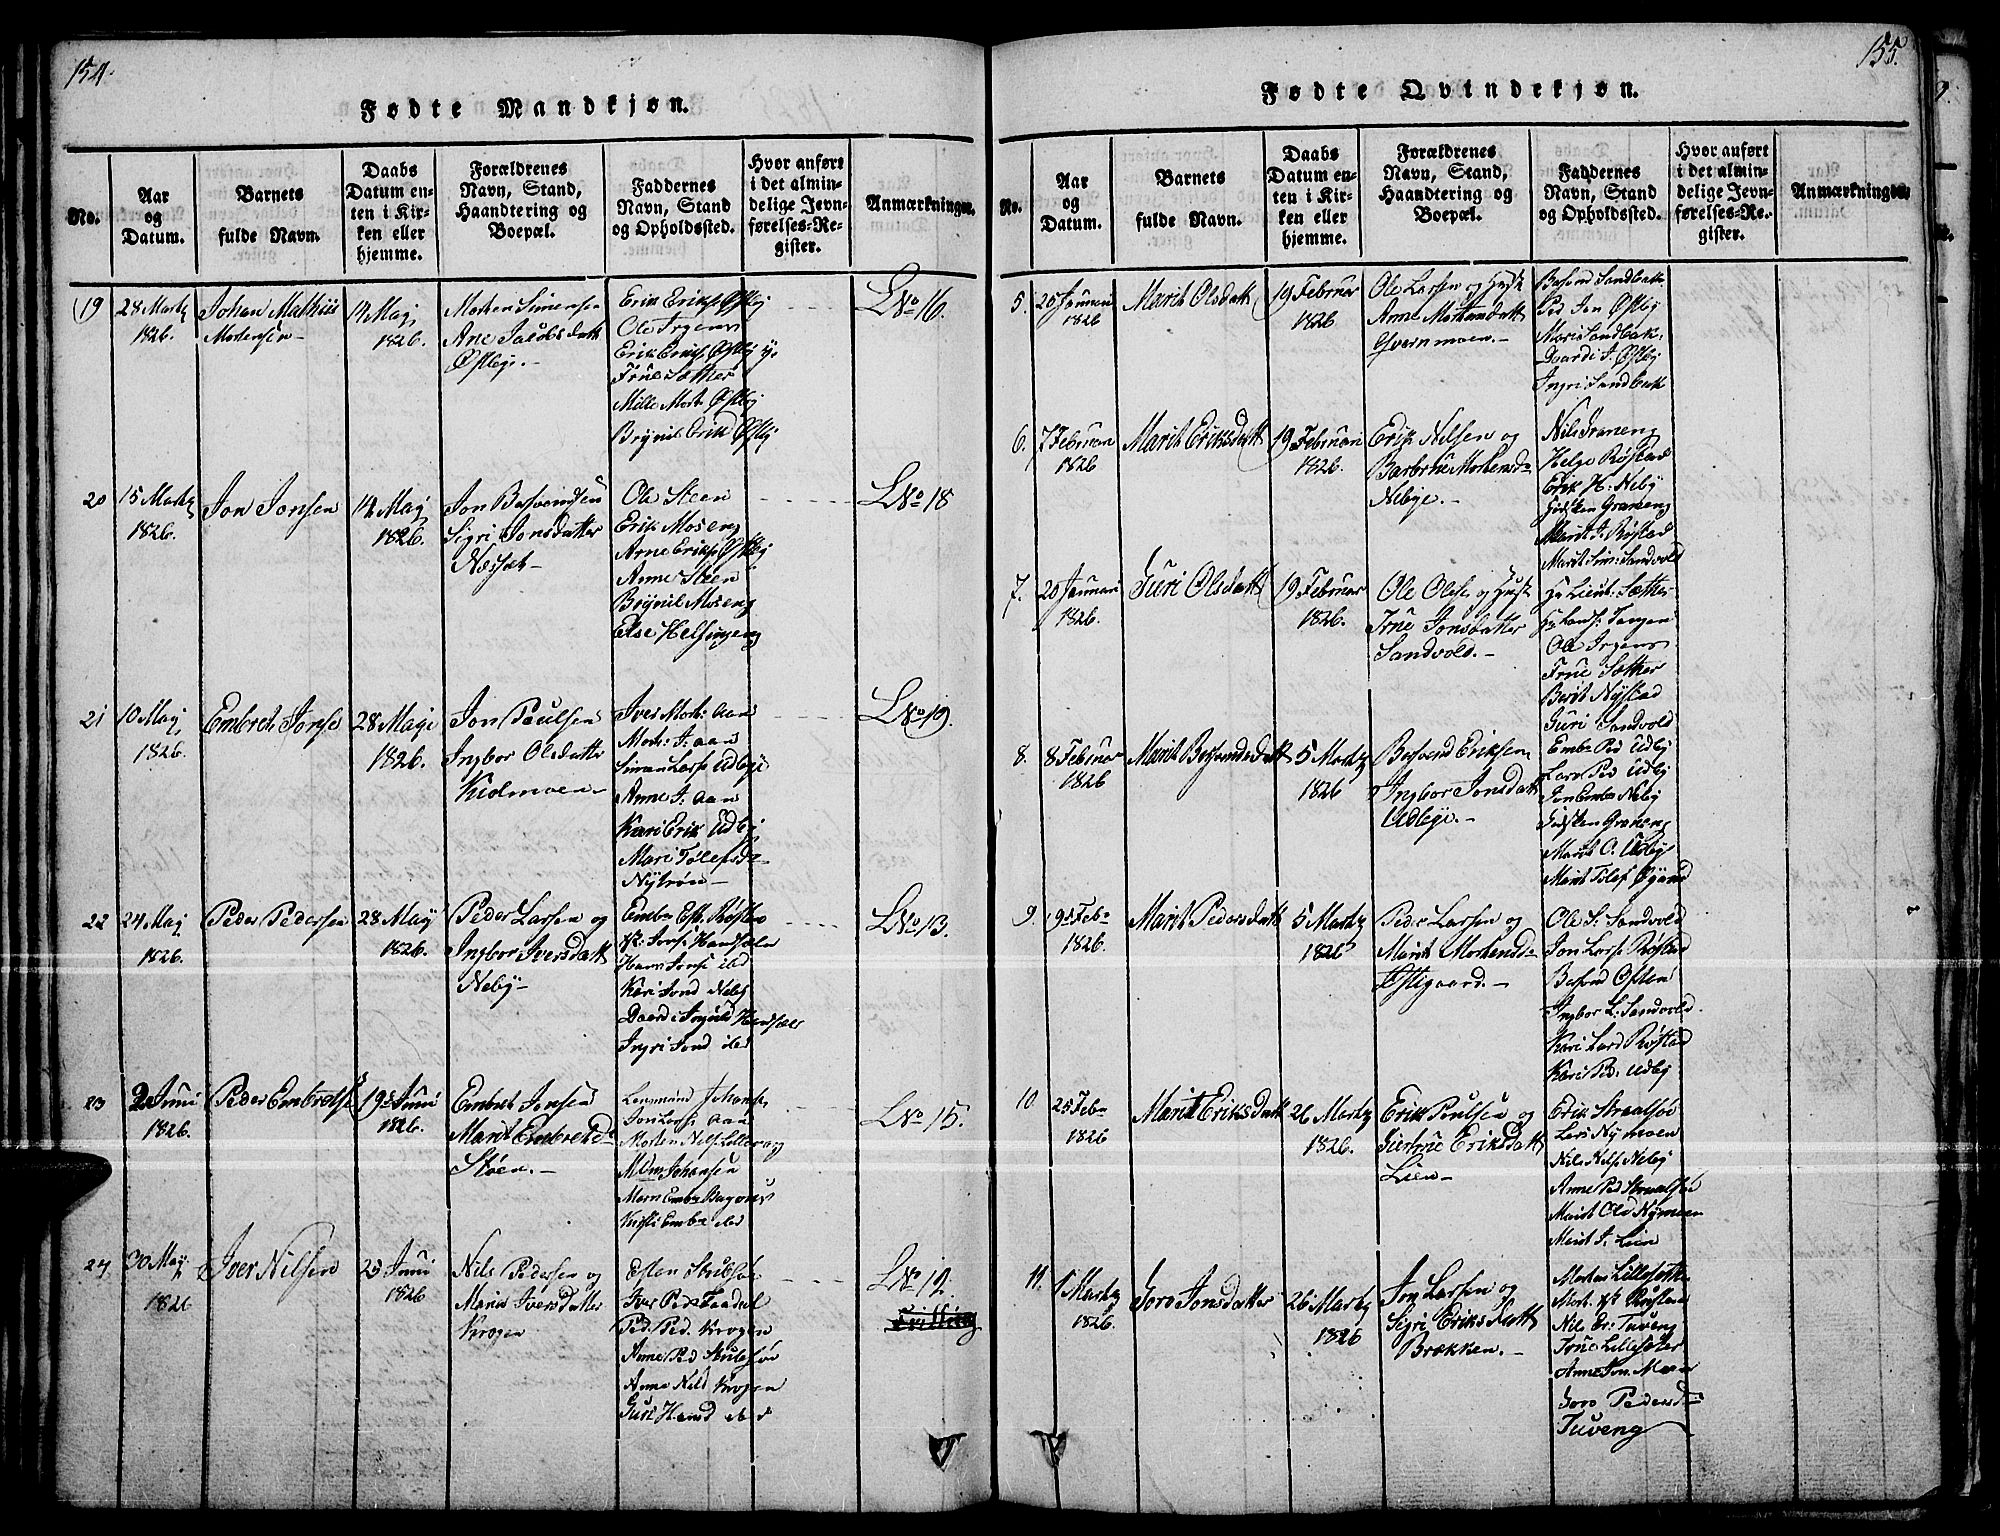 154.
Fødte Mandkjøn.
No.
Aar
og
Datum.
Barnets
fulde Navn.
Daabs
Datum en-
ten i Kir-
ken eller
hjemme.
Forældrenes
Navn, Stand,
Haandtering og
Boepæl.
Faddernes
Navn, Stand
og Opholdssted.
Hvor anført
i det almin-
delige Jevn-
førelses-Re-
gister.
Anmærkninger.
19
28 Martz
1826.
Johan Mathiis
Mortensen
14 Maj
1826.
Morten Simensen
Ane Jacobsdatt
Østbye.
Erik Eriks Østby
Ole Irgens
Erik Eriks Østby y.
Frue Sæther
Mille Mort Østby
Brynil Erik Østby
No 16.
20
15 Martz
1826.
Jon Jonsen
14 Maj
1826.
Jon Besvendsen
Sigri Jonsdatter
Næsset
Ole Steen
Erik Moseng
Arne Eriks Østby
Anne Steen
Brynil Moseng
Else Helsingeng
No 18
21
10 Maj
1826.
Embret Jonse
28 Maje
1826.
Jon Paulsen
Ingbor Olsdatter
Kiolmoen
Iver Mort: Aan
Mort: J: aan
Simen Lars Udbye
Anne J: aan
Kari Erik Udby
Mari Tolefsd
Nytrøn
No 19.
22
24 Maj
1826.
Peder Pedersen
28 May
1826.
Peder Larsen og
Ingbor Iversdatt
Neby
Embr Est. Røsten
Hans Jons ibd
Kari Jond Neby
Ingri Jond ibd
No 13.
23
2 Juni
1826.
Peder Embretse
19 Juni
1826.
Embret Jonsen
Marit Embretsd
Støen.
Lensmand Johans
Jon Lars Aan
Mdm Johansen
Kirsti Embr ibd
No 15.
24
30 May
1826
Iver Nilsen
25 Juni
1826
Nils Pedersen og
Marit Iversdatter
Krogen
Ped: Ped. Krogen
Anne Nils Krogen
Guri Hansd ibd
No 12.
Tvilling
155.
Fødte Qvindekjøn.
No.
Aar
og
Datum.
Barnets
fulde Navn.
Daabs
Datum en-
ten i Kir-
ken eller
hjemme.
Forældrenes
Navn, Stand,
Haandtering og
Boepæl.
Faddernes
Navn, Stand
og Opholdssted.
Hvor anført
i det almin-
delige Jevn-
førelses-Re-
gister.
Anmærkninger.
5.
25 Januari
1826
Marit Olsdatt
19 Februar
1826
Ole Larsen og Hust
Anne Mortensdatt
Qvernmoen.
Besvend Sandbak
Ped Jon Østby
Mari Sandbak.
Goardi J. Østby
Ingri Sandbak
6.
7 Februari
1826
Marit Eriksdatt
19 Februari
1826.
Erik Nilsen og
Barbroe Mortensd
Nebye.
Nils Graneng
Helge Røstad
Erik H: Neby
Gidsken Graneng
Marit J. Røstad
Marit Sim: Sandvold
7.
20 Januari
1826.
Guri Olsdatt
19 Februar
1826.
Ole Olsen og Hust
Frue Jonsdatter
Sandvold.
Hr Lieut: Sæther
Ole Irgens
Frue Sæther
Berit Nystad
Guri Sandvold
8.
8 Februar
1826
Marit Besvendsdatt
5 Martz
1826
Besvend Eriksen
Ingbor Jonsdatt
Udbye.
Embr Ped Udby
Lars Ped Udby
Jon Embr Neby
Gidsken Graneng
Marit O. Udby
Marit Tolef Øyund
9.
19 Febr
1826.
Marit Pedersdatt
5 Martz
1826
Peder Larsen og
Marit Mortensd
Østgaard.
Ole S: Sandvold
Jon Lars Røstad
Besvend Osten
Ingbor L: Sandvold
Kari Lard Røstad
Kari Ped: Udby
10.
25 Febr
1826
Marit Eriksdatt
26 Martz
1826.
Erik Poulsen og
Giertrue Eriksdatt
Lien
Erik Straalsøe
Lars Nymoen
Nils Nils Neby
Anne Ped Straalsøe
Marit Ole Nymoen
Marit J. Lien
11.
1 Martz
1826.
Goro Jonsdatter
26 Martz
1826
Jon Larsen og
Sigri Eriksdatt
Brækken.
Morten Lillesæter
Nils Er: Tuveng
Frue Lillesæter
Anne Jon Moen
Goro Pedersd
Tuveng